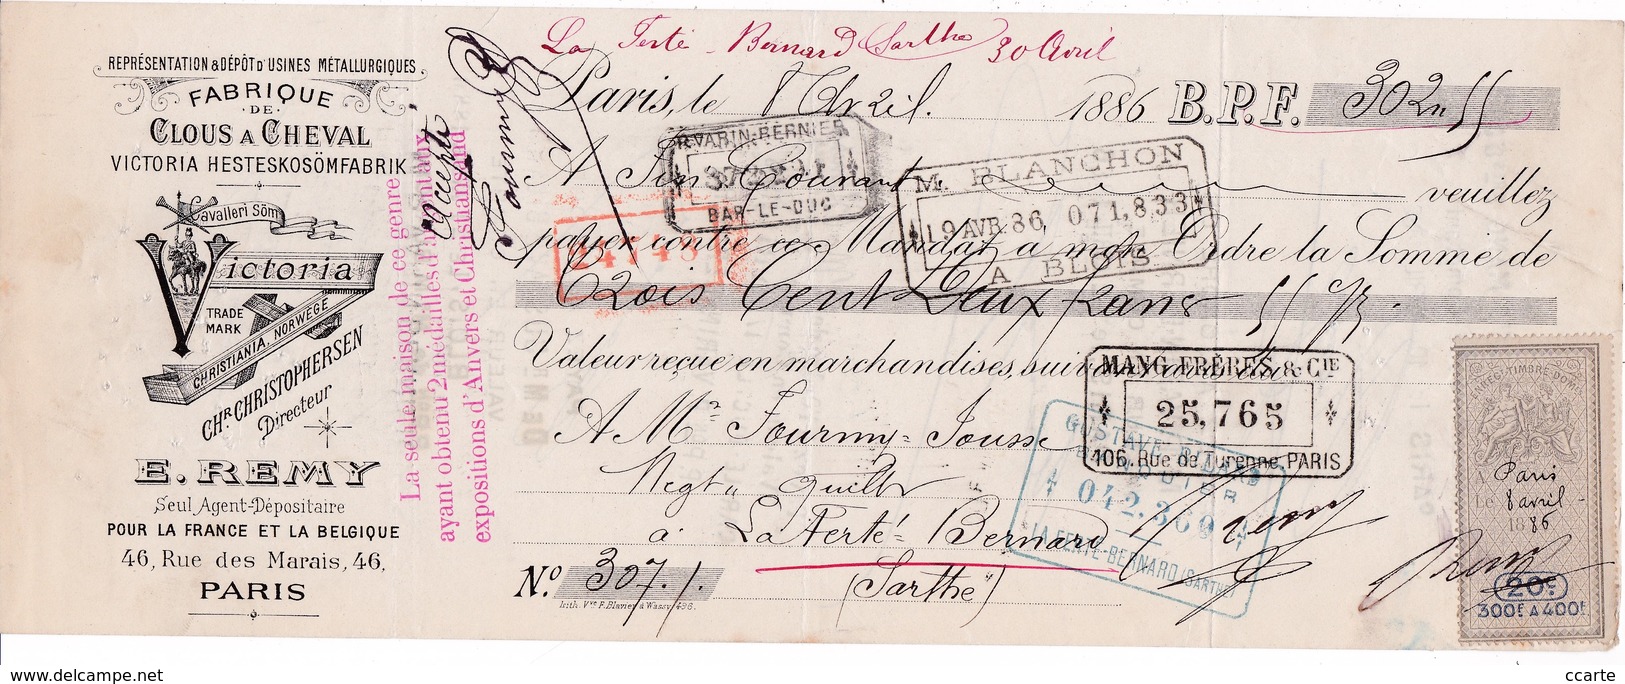 REPRÉSENTATION & DÉPÔT D'USINES MÉTALLURGIQUES
FABRIQUE
DE
CLOUS A CHEVAL
VICTORIA HESTESKOSÖMFABRIK
Cavalleri Söm
Victoria
TRADE
MARK
CHRISTIANIA, NORWÈGE
CHR CHRISTOPHERSEN
Directeur
E. REMY
Seul Agent-Dépositaire
POUR LA FRANCE ET LA BELGIQUE
46, Rue des Marais, 46,
PARIS
La seule maison de ce genre
ayant obtenu 2 médailles d'argent aux
expositions d'Anvers et Christiansand
Accepté
Fourmy
La Ferté-Bernard Sarthe 30 Avril
Paris, le 8 Avril 1886 B.P.F. 302 55
P. VARIN-BERNIER
BAR-LE-DUC
M. BLANCHON
19 AVR. 86, 071,833
A BLOIS
A Fin Courant veuillez
payer contre ce Mandat à mon Ordre la Somme de
24748
Trois Cent Deux francs 55 c/
Valeur reçue en marchandises, suivant
MANG FRÈRES & CIE
25,765
106, Rue de Turenne, PARIS
A Mr Fourmy-Jousse
Negt
à La Ferté-Bernard
(Sarthe)
GUSTAVE
042.360
LA FERTÉ-BERNARD (SARTHE)
Remy
No. 307.
Lith. Vve F. Blavier à Wassy, 486.
ENREG. TIMBRE DOM.
A Paris
Le 8 avril
1886
Remy
20c
300F A 400F
ccarte